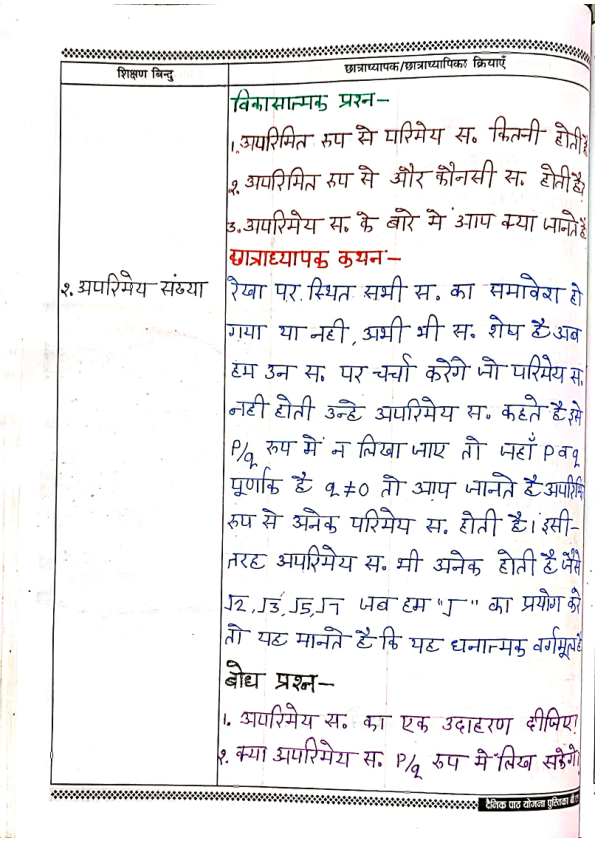 शिक्षण बिन्दु
छात्राध्यापक/छात्राध्यापिका क्रियाएँ
विकासात्मक प्रश्न–
1. अपरिमित रूप से परिमेय स. कितनी होती है
२. अपरिमित रूप से और कौनसी स. होती है?
3. अपरिमेय स. के बारे में आप क्या जानते है
छात्राध्यापक कथन–
२. अपरिमेय संख्या
रेखा पर स्थित सभी स. का समावेश हो
गया या नही, अभी भी स. शेष है अब
हम उन स. पर चर्चा करेगे जो परिमेय स.
नही होती उन्हे अपरिमेय स. कहते है इसे
P/q रूप में न लिखा जाए तो जहाँ P व q
पूर्णाक है q ≠0 तो आप जानते है अपरिमि
रूप से अनेक परिमेय स. होती है। इसी–
तरह अपरिमेय स. भी अनेक होती है जैसे
√2, √3, √5, √7 जब हम "√" का प्रयोग करे
तो यह मानते है कि यह धनात्मक वर्गमूल है
बोध प्रश्न–
1. अपरिमेय स. का एक उदाहरण दीजिए?
२. क्या अपरिमेय स. P/q रूप में लिख सकेगे।
दैनिक पाठ योजना पुस्तिका बी.